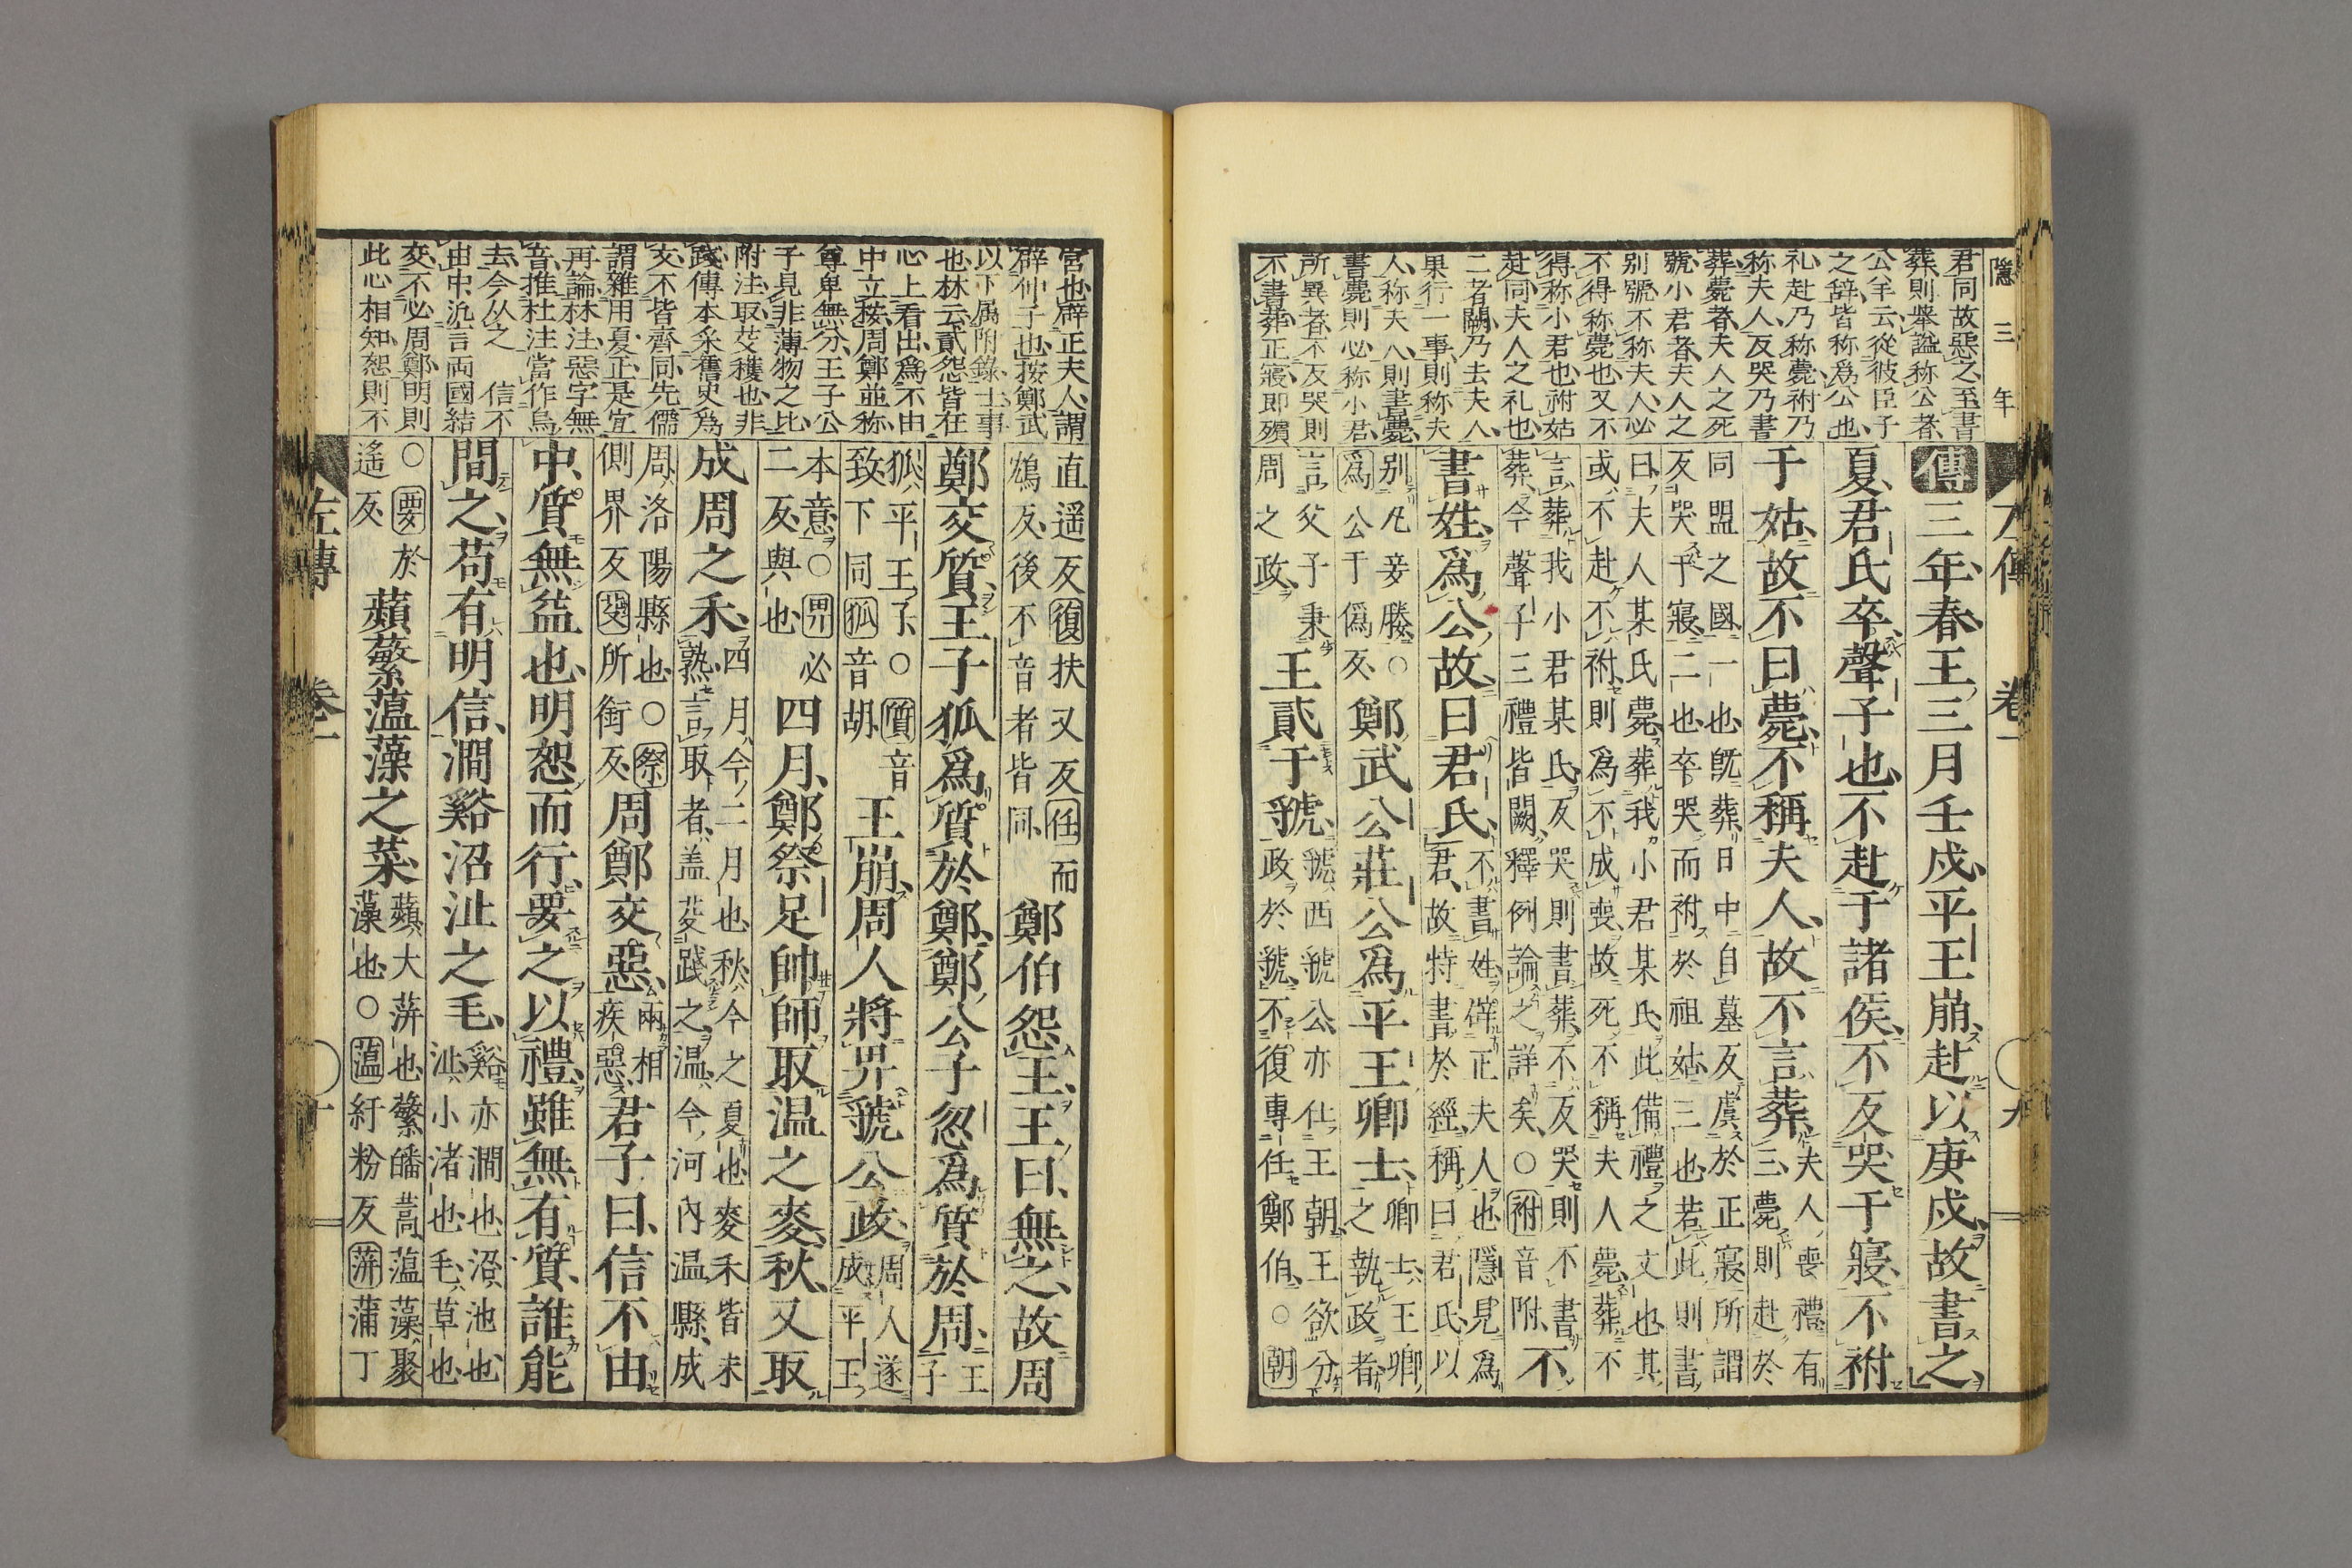 隱三年
君同故惡之至書
葬則舉謚称公者
公羊云從彼臣子
之辞皆称爲公也
礼赴乃称薨祔乃
称夫人反哭乃書
葬薨者夫人之死
號小君者夫人之
别號不称夫人必
不得称薨也又不
得称小君也祔姑
赴同夫人之礼也
二者闕乃去夫人
果行一事則称夫
人称夫人則書薨
書薨則必称小君
所異者不反哭則
不書葬正寢即殯
左傳 卷一 九
傳三年春王三月壬戌平王崩赴以庚戌故書之
夏君氏卒聲子也不赴于諸侯不反哭于寢不祔
于姑故不曰薨不稱夫人故不言葬夫人喪禮有三薨則赴於
同盟之國一也既葬日中自墓反虞於正寢所謂
反哭于寢二也卒哭而祔於祖姑三也若此則書
曰夫人某氏薨葬我小君某氏此備禮之文也其
或不赴不祔則爲不成喪故死不稱夫人薨葬不
言葬我小君某氏反哭則書葬不反哭則不書
葬今聲子三禮皆闕釋例論之詳矣○祔音附不
書姓爲公故曰君氏不書姓辟正夫人也隱見爲君故特書於經稱曰君氏以
别凡妾媵○爲公于僞反鄭武公莊公爲平王卿士卿士王卿之執政者
言父子秉周之政王貳于虢虢西虢公亦仕王朝王欲分政於虢不復專任鄭伯○朝
宮也辟正夫人謂
辟仲子也按鄭武
以下属附錄士事
也林云貳怨皆在
心上看出爲不由
中立按周鄭並称
尊卑無分王子公
子見非薄物之比
附法取芟穫也非
踐傳本采舊史爲
交不皆齊同先儒
謂雜用夏正是宜
再論林注惡字無
音推杜注當作烏
去今从之 信不
由中汎言両國結
交不必周鄭明則
此心相知恕則不
直遥反復扶又反任而鴆反後不音者皆同鄭伯怨王王曰無之故周
鄭交質王子狐爲質於鄭鄭公子忽爲質於周王子
狐平王子○質音致下同狐音胡王崩周人將畀虢公政周人遂成平王
本意○畀必二反與也四月鄭祭足帥師取温之麥秋又取
成周之禾四月今二月也秋今之夏也麥禾皆未熟言取者盖芟踐之温今河內温縣成
周洛陽縣也○祭側界反芟所銜反周鄭交惡兩相疾惡君子曰信不由
中質無益也明恕而行要之以禮雖無有質誰能
間之苟有明信澗谿沼沚之毛谿亦澗也沼池也沚小渚也毛草也
○要於遙反蘋蘩薀藻之菜蘋大蓱也蘩皤蒿薀藻聚藻也○薀紆粉反蓱蒲丁
左傳 卷一 十